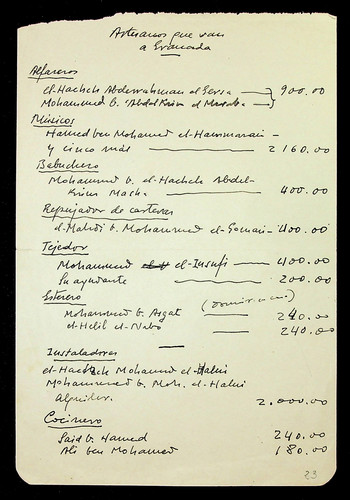 Artesanos que van
a Granada
Alfareros
el-Hachch Abderrahman el Gersa — 900.00
Mohammed b. Abdel Krim el
Músicos
Hamed ben Mohamed el-Hammarani -
y cinco más — 2160.00
Babuchero
Mohammed b. el-Hachch Abdel-
Krim — 400.00
Repujador de carteras
el-Mahdi b. Mohammed el-Gomari - 400.00
Tejedor
Mohammed el-Insufi — 400.00
Su ayudante — 200.00
Esterero
Mohammed b. Asgat — 240.00
el-Helil el-Nabó — 240.00
Instaladores
el-Hachch Mohamed el-Halui
Mohammed b. Moh. el-Halui
Alquiler. 2.000.00
Cocinero
Said b. Hamed 240.00
Ali ben Mohamed 180.00
23